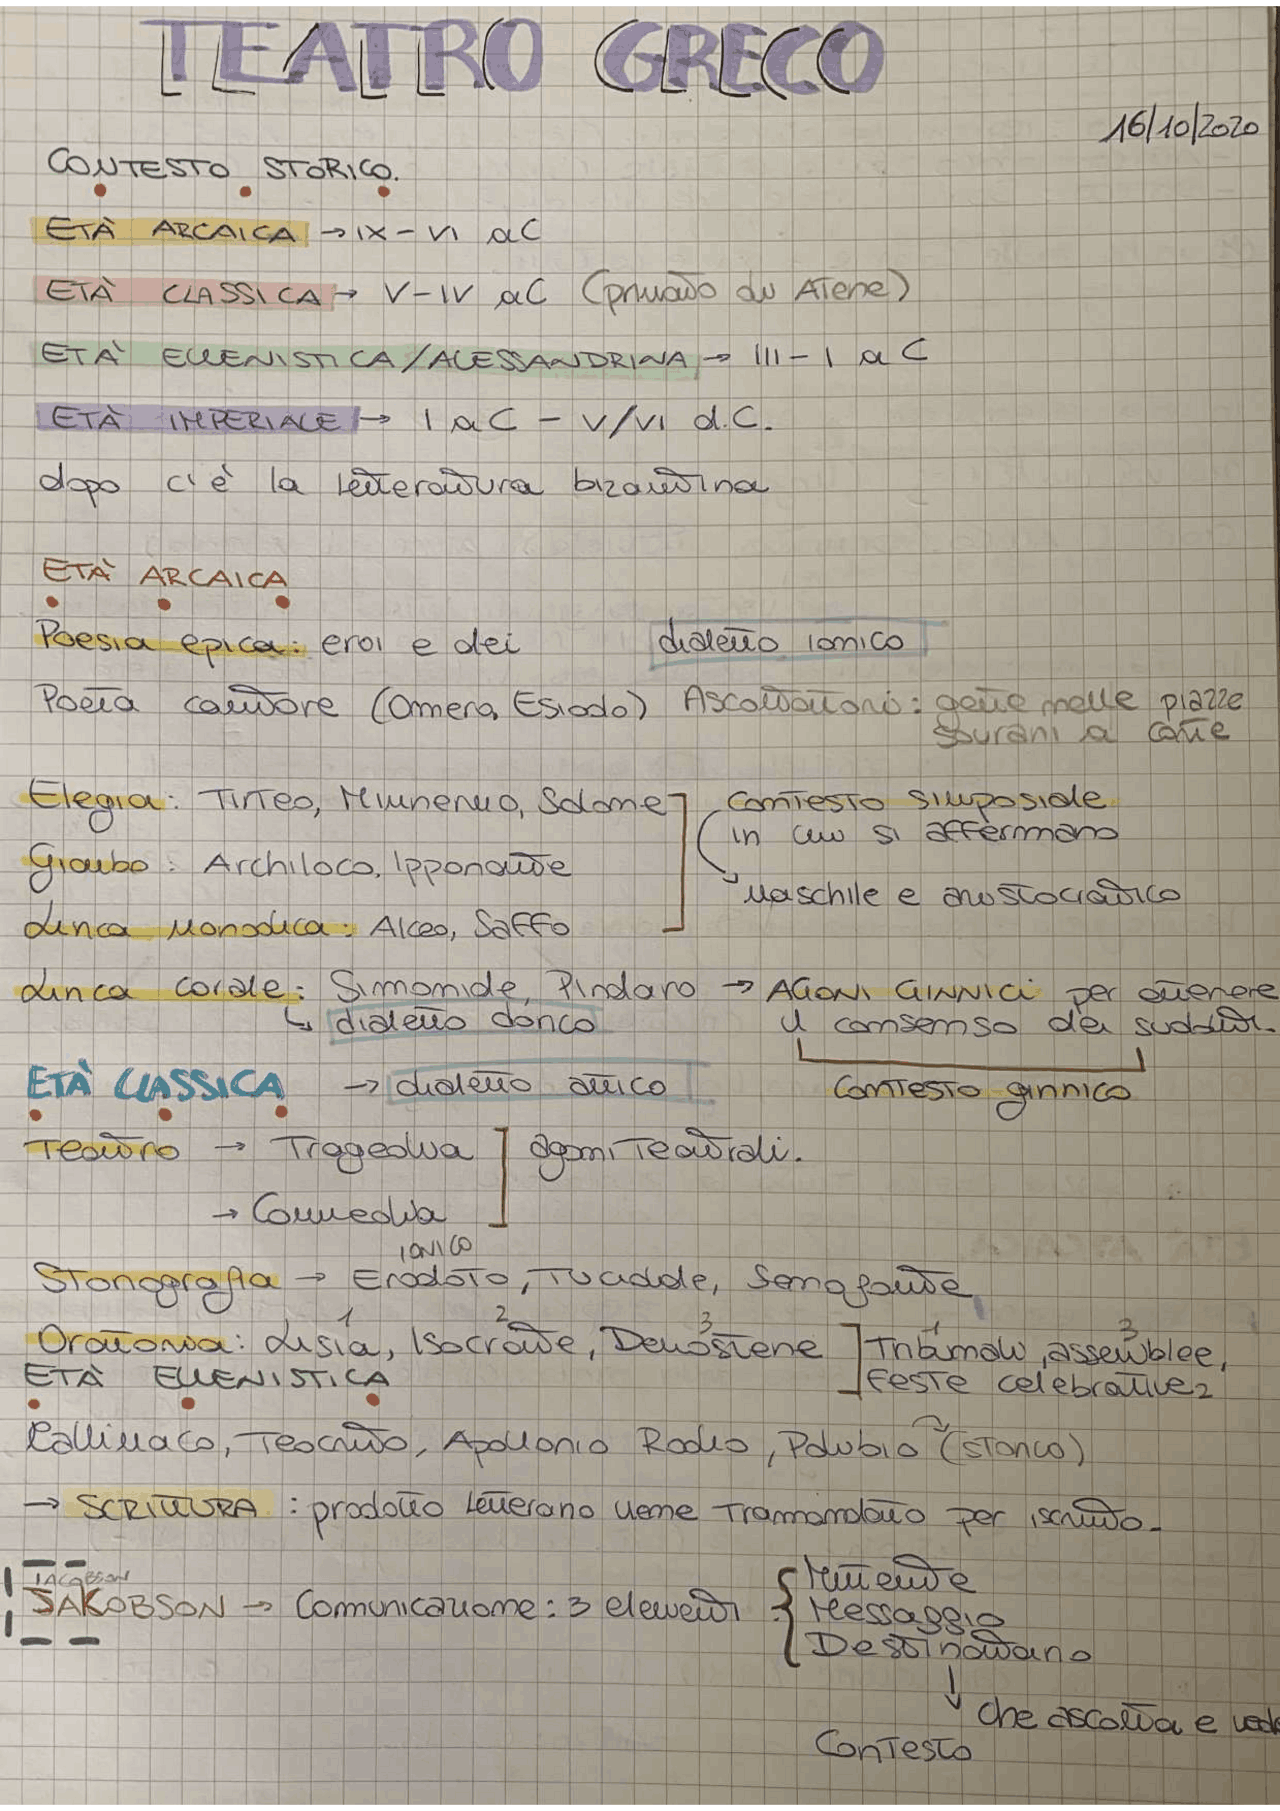 TEATRO GRECO
16/10/2020
CONTESTO STORICO.
ETÀ ARCAICA → IX - VI aC
ETÀ CLASSICA → V - IV aC (primato di Atene)
ETÀ ELLENISTICA/ALESSANDRINA → III - I aC
ETÀ IMPERIALE → I aC - V/VI d.C.
dopo c'è la letteratura bizantina
ETÀ ARCAICA
Poesia epica: eroi e dei dialetto ionico
Poeta cantore (Omero, Esiodo) Ascoltatori: gente nelle piazze
sovrani a corte
Elegia: Tirteo, Mimnermo, Solone contesto simposiale
in cui si affermano
Giambo: Archiloco, Ipponatte
maschile e aristocratico
Lirica Monodica: Alceo, Saffo
Lirica corale: Simonide, Pindaro → AGONI GINNICI per ottenere
↳ dialetto dorico il consenso dei sudditi.
ETÀ CLASSICA → dialetto attico contesto ginnico
Teatro → Tragedia agoni teatrali.
→ Commedia
IONICO
Storiografia → Erodoto, Tucidide, Senofonte
1 2 3 1 3
Oratoria: Lisia, Isocrate, Demostene Tribunali, assemblee,
ETÀ ELLENISTICA feste celebrative 2
Callimaco, Teocrito, Apollonio Rodio, Polibio (storico)
→ SCRITTURA: prodotto letterario viene tramandato per iscritto.
JACOBSON Mittente
JAKOBSON → Comunicazione: 3 elementi { Messaggio
Destinatario
↓ che ascolta e vede
Contesto